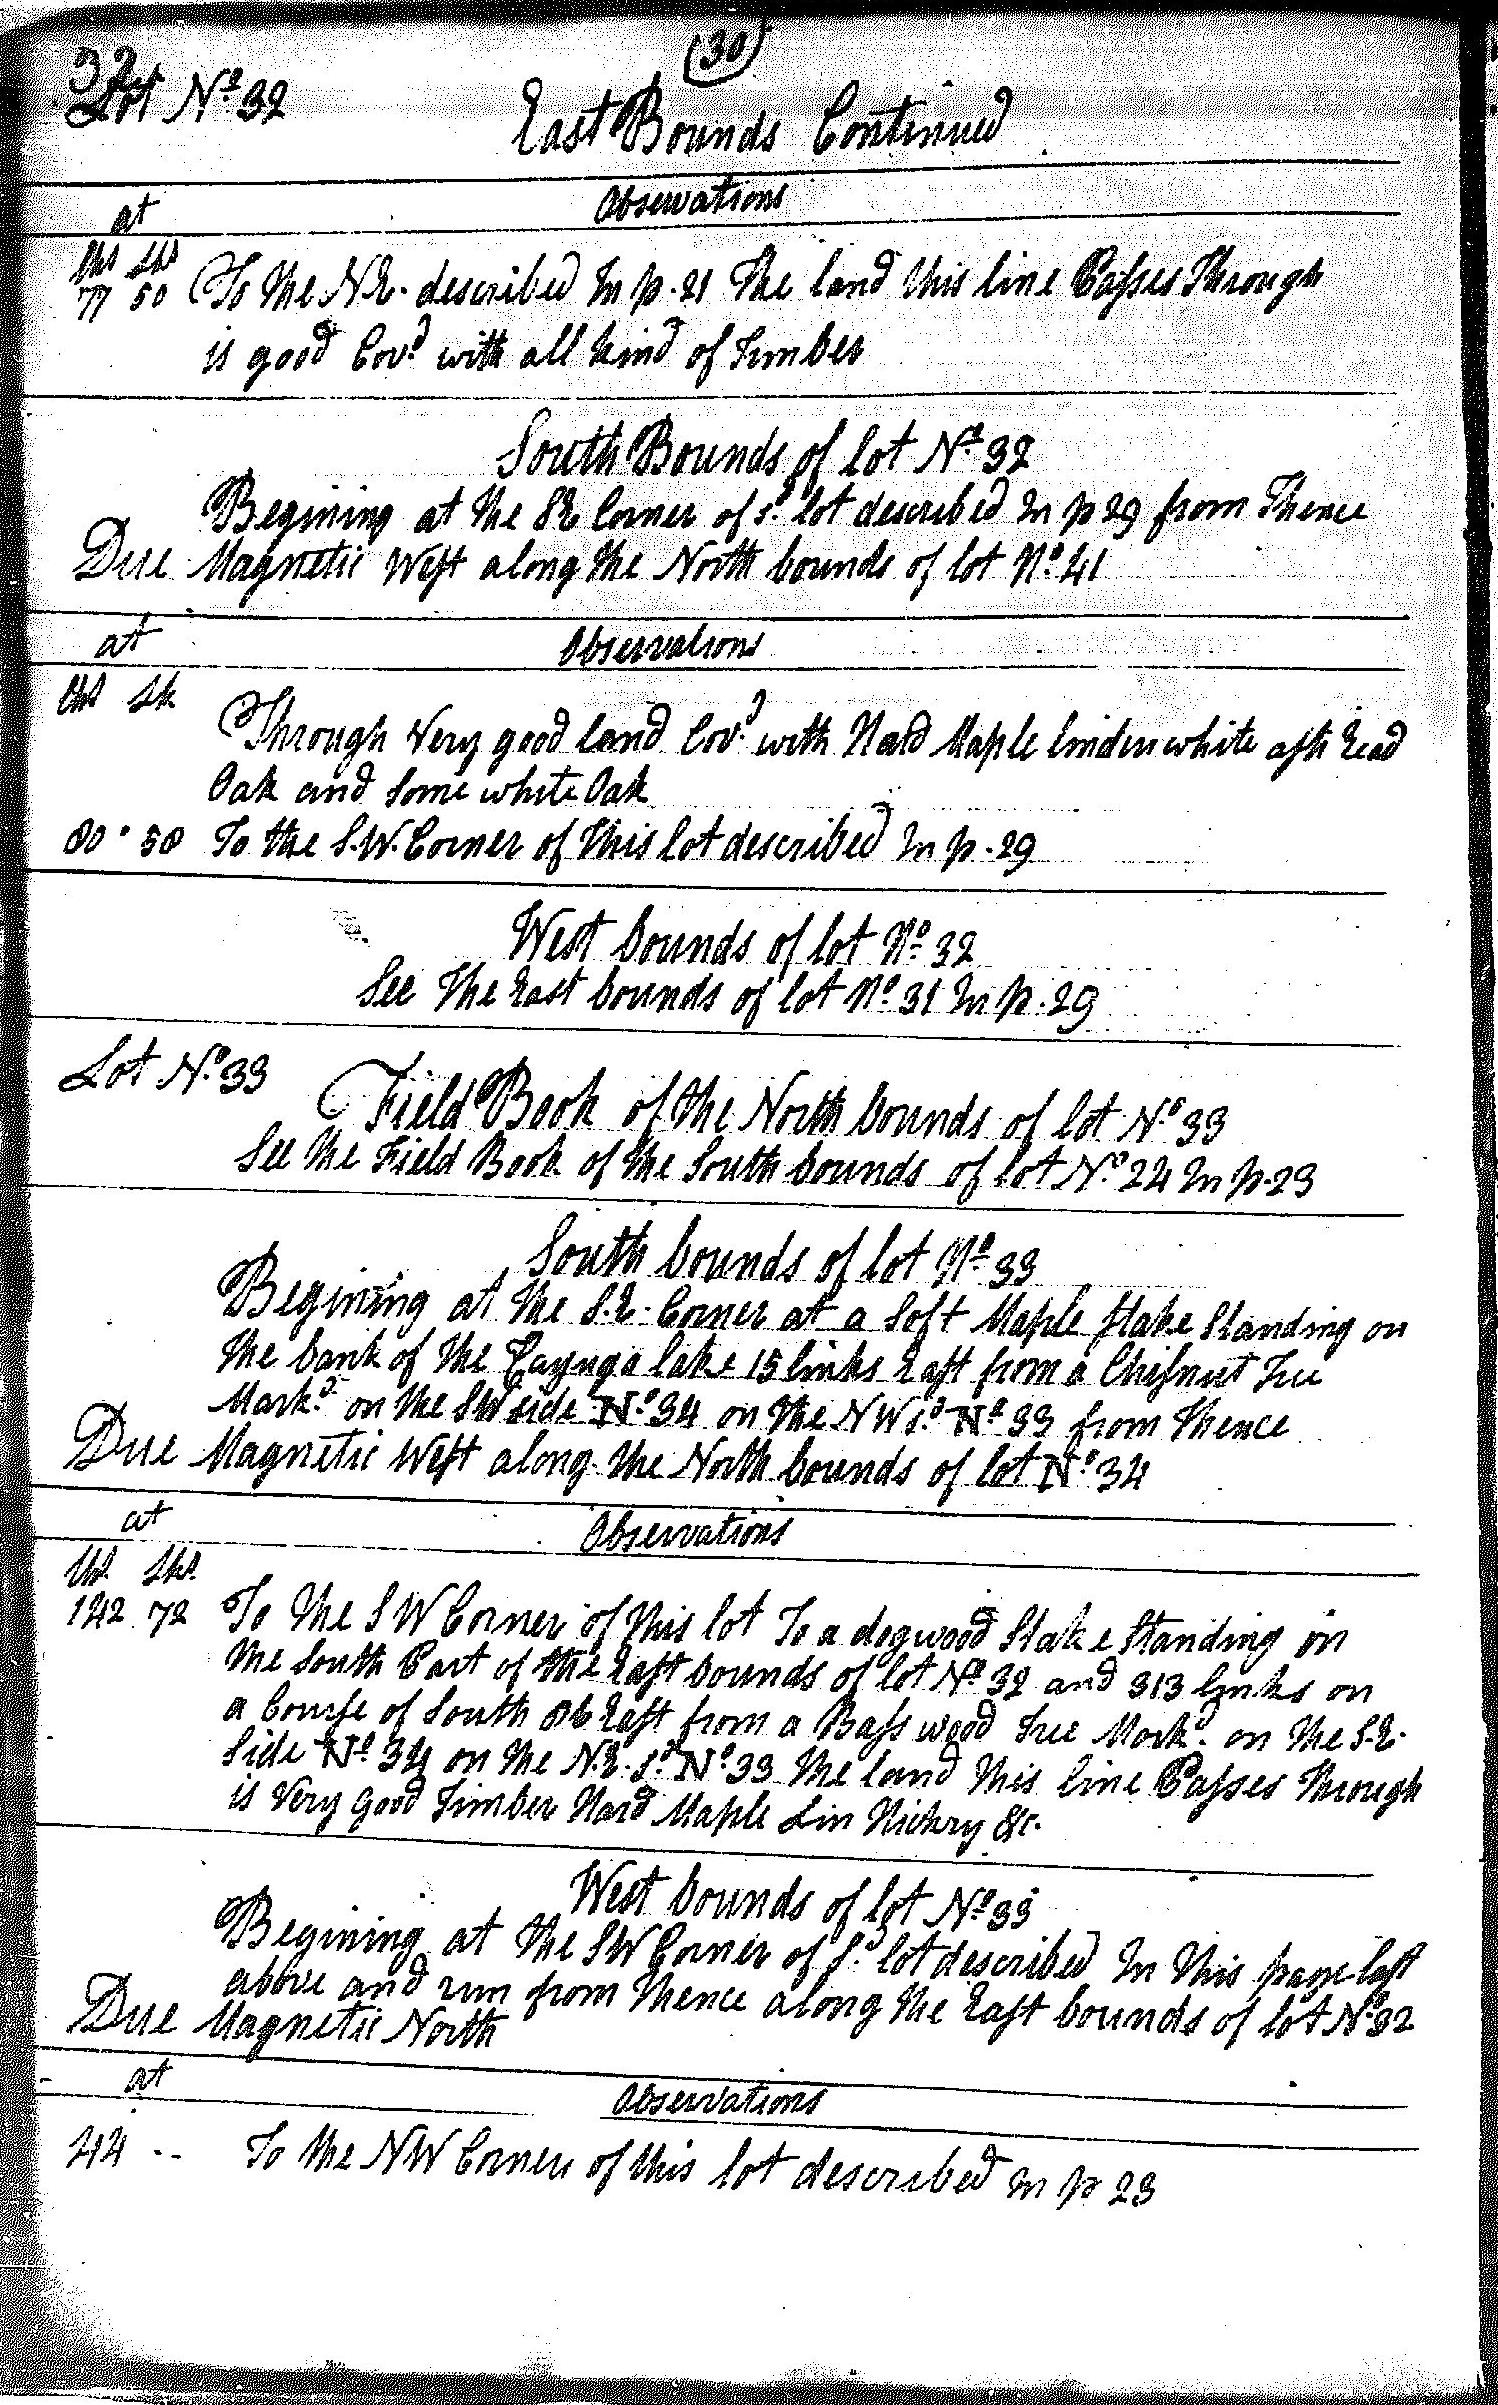 (30)
32
Lot Nº 32
East Bounds Continued
at Observations
Chs Lks
77 50 To the N.E. described In p. 21 The land this line Passes Through
is good Covd with all kind of Timber
South Bounds of lot Nº 32
Begining at the SE Corner of sd lot described In p 29 from Thence
Due Magnetic West along the North bounds of lot Nº 41
at Observations
Chs Lk
Through Very good land Covd with Hard Maple linden white ash Read
Oak and Some white Oak
80 · 50 To the S.W. Corner of this lot described In p. 29
West bounds of lot Nº 32
See The East bounds of lot Nº 31 In p. 29
Lot Nº 33
Field Book of the North bounds of lot Nº 33
See the Field Book of the South bounds of lot Nº 24 In p. 23
South bounds of lot Nº 33
Begining at the S.E. Corner at a Soft Maple Stake Standing on
the bank of the Cayuga lake 15 links East from a Chesnut Tree
Markd on the SW side Nº 34 on the NW sd Nº 33 from Thence
Due Magnetic West along the North bounds of lot Nº 34
at Observations
Chs. Lks.
142 72 To the SW Corner of this lot To a dogwood Stake Standing in
the South Part of the East bounds of lot Nº 32 and 313 links on
a Course of South 86 East from a Bass wood Tree Markd on the S.E.
Side Nº 34 on the N.E. sd Nº 33 the land this line Passes Through
is Very good Timber Hard Maple Lin Hickry &c.
West bounds of lot Nº 33
Begining at the SW Corner of sd lot described In this page last
above and run from thence along the East bounds of lot Nº 32
Due Magnetic North
at Observations
44 -- To the NW Corner of this lot described In p 23